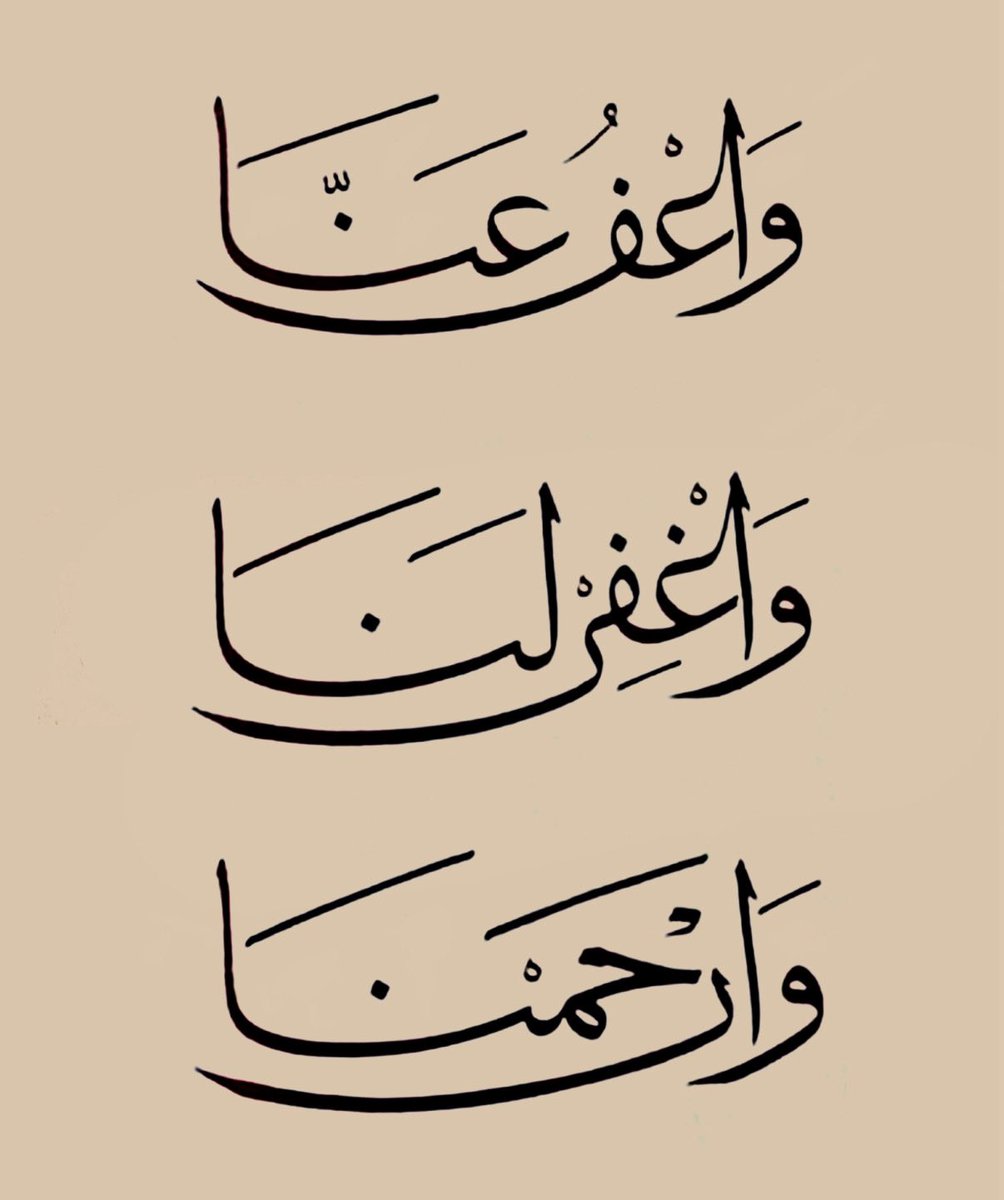 وَاعْفُ عَنَّا
وَاغْفِرْ لَنَا
وَارْحَمْنَا